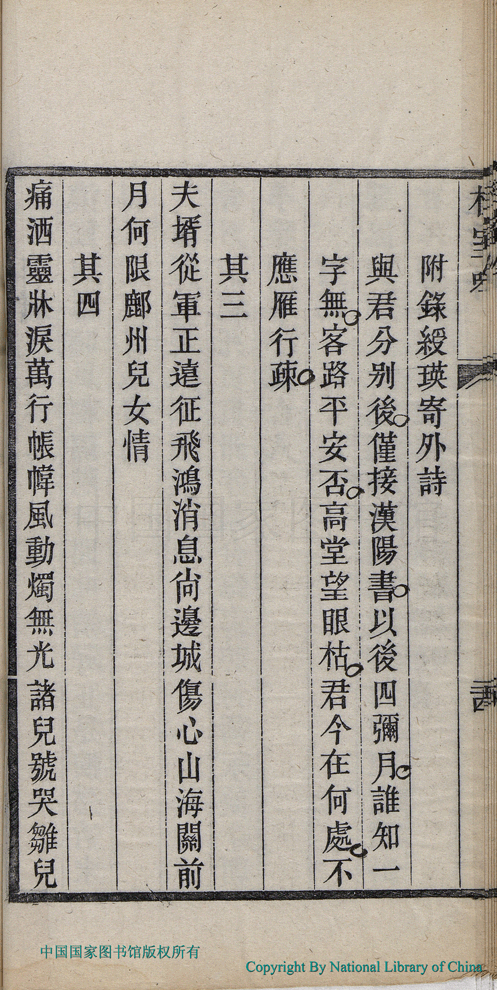 附錄綬瑛寄外詩
與君分别後僅接漢陽書以後四彌月誰知一
字無客路平安否高堂望眼枯君今在何處不
應雁行疎
其三
夫壻從軍正遠征飛鴻消息尙邊城傷心山海關前
月何限鄜州兒女情
其四
痛洒靈牀淚萬行帳幃風動燭無光諸兒號哭雛兒
中国国家图书馆版权所有
Copyright By National Library of China